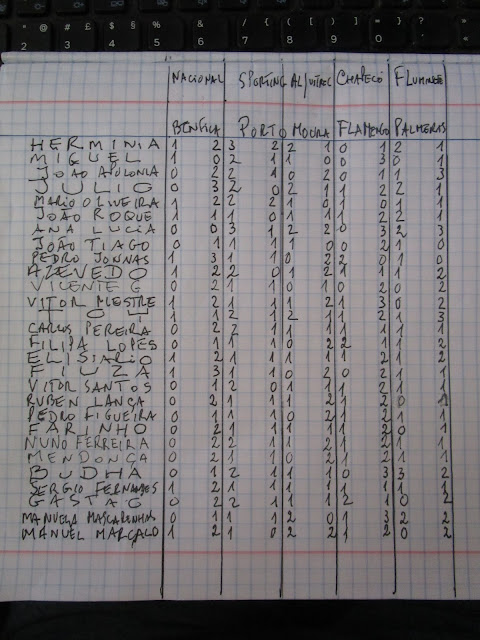 NACIONAL SPORTING AL/USTREL CHAPECÓ FLUMINENSE
BENFICA PORTO MOURA FLAMENGO PALMEIRAS
HERMINIA 1 2 3 2 2 1 0 1 2 1
MIGUEL 1 0 2 1 1 0 0 3 0 1
JOÃO APOLONIA 0 2 2 1 0 2 0 1 1 3
JULIO 0 3 2 0 2 1 1 2 2 1
MARIO OLIVEIRA 1 2 2 2 1 0 1 0 1 1
JOÃO ROQUE 1 1 1 0 1 1 1 2 2 1
ANA LUCIA 0 0 3 1 2 2 0 3 2 3
JOÃO TIAGO 0 1 1 1 1 0 0 2 1 0
PEDRO JONNAS 1 3 1 1 0 2 2 0 1 0
AZEVEDO 1 2 2 0 2 1 1 1 1 2
VICENTE G 0 2 1 1 0 1 0 2 0 2
VITOR MESTRE 1 2 1 1 1 2 1 3 0 2
TOY 1 1 1 2 1 2 1 1 1 3
CARLOS PEREIRA 0 2 2 1 1 1 1 1 1 1
FILIPA LOPES 0 1 1 1 0 2 2 1 1 2
ELISIARIO 0 1 1 1 1 1 1 2 1 2
FIUZA 1 3 1 1 0 2 0 2 1 1
VITOR SANTOS 0 1 2 0 1 1 1 1 1 1
RUBEN LANÇA 0 2 1 1 1 2 1 2 0 1
PEDRO FIGUEIRA 0 1 1 1 0 2 1 2 1 1
FARINHO 0 2 1 1 1 1 1 2 0 1
NUNO FERREIRA 0 2 2 1 1 2 1 1 1 1
MENDONÇA 0 2 1 1 0 2 1 2 1 2
BUDHA 0 1 2 1 1 1 0 3 3 2
SERGIO FERNANDES 1 2 1 1 1 2 1 1 1 1
GASTÃO 0 2 2 1 1 1 2 1 0 2
MANUELA MASCARENHAS 0 1 1 1 2 0 1 3 2 2
MANUEL MARÇALO 1 2 1 0 2 2 1 2 0 2